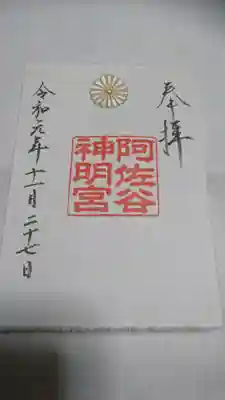 奉拝
阿佐谷
神明宮
令和元年十一月二十七日